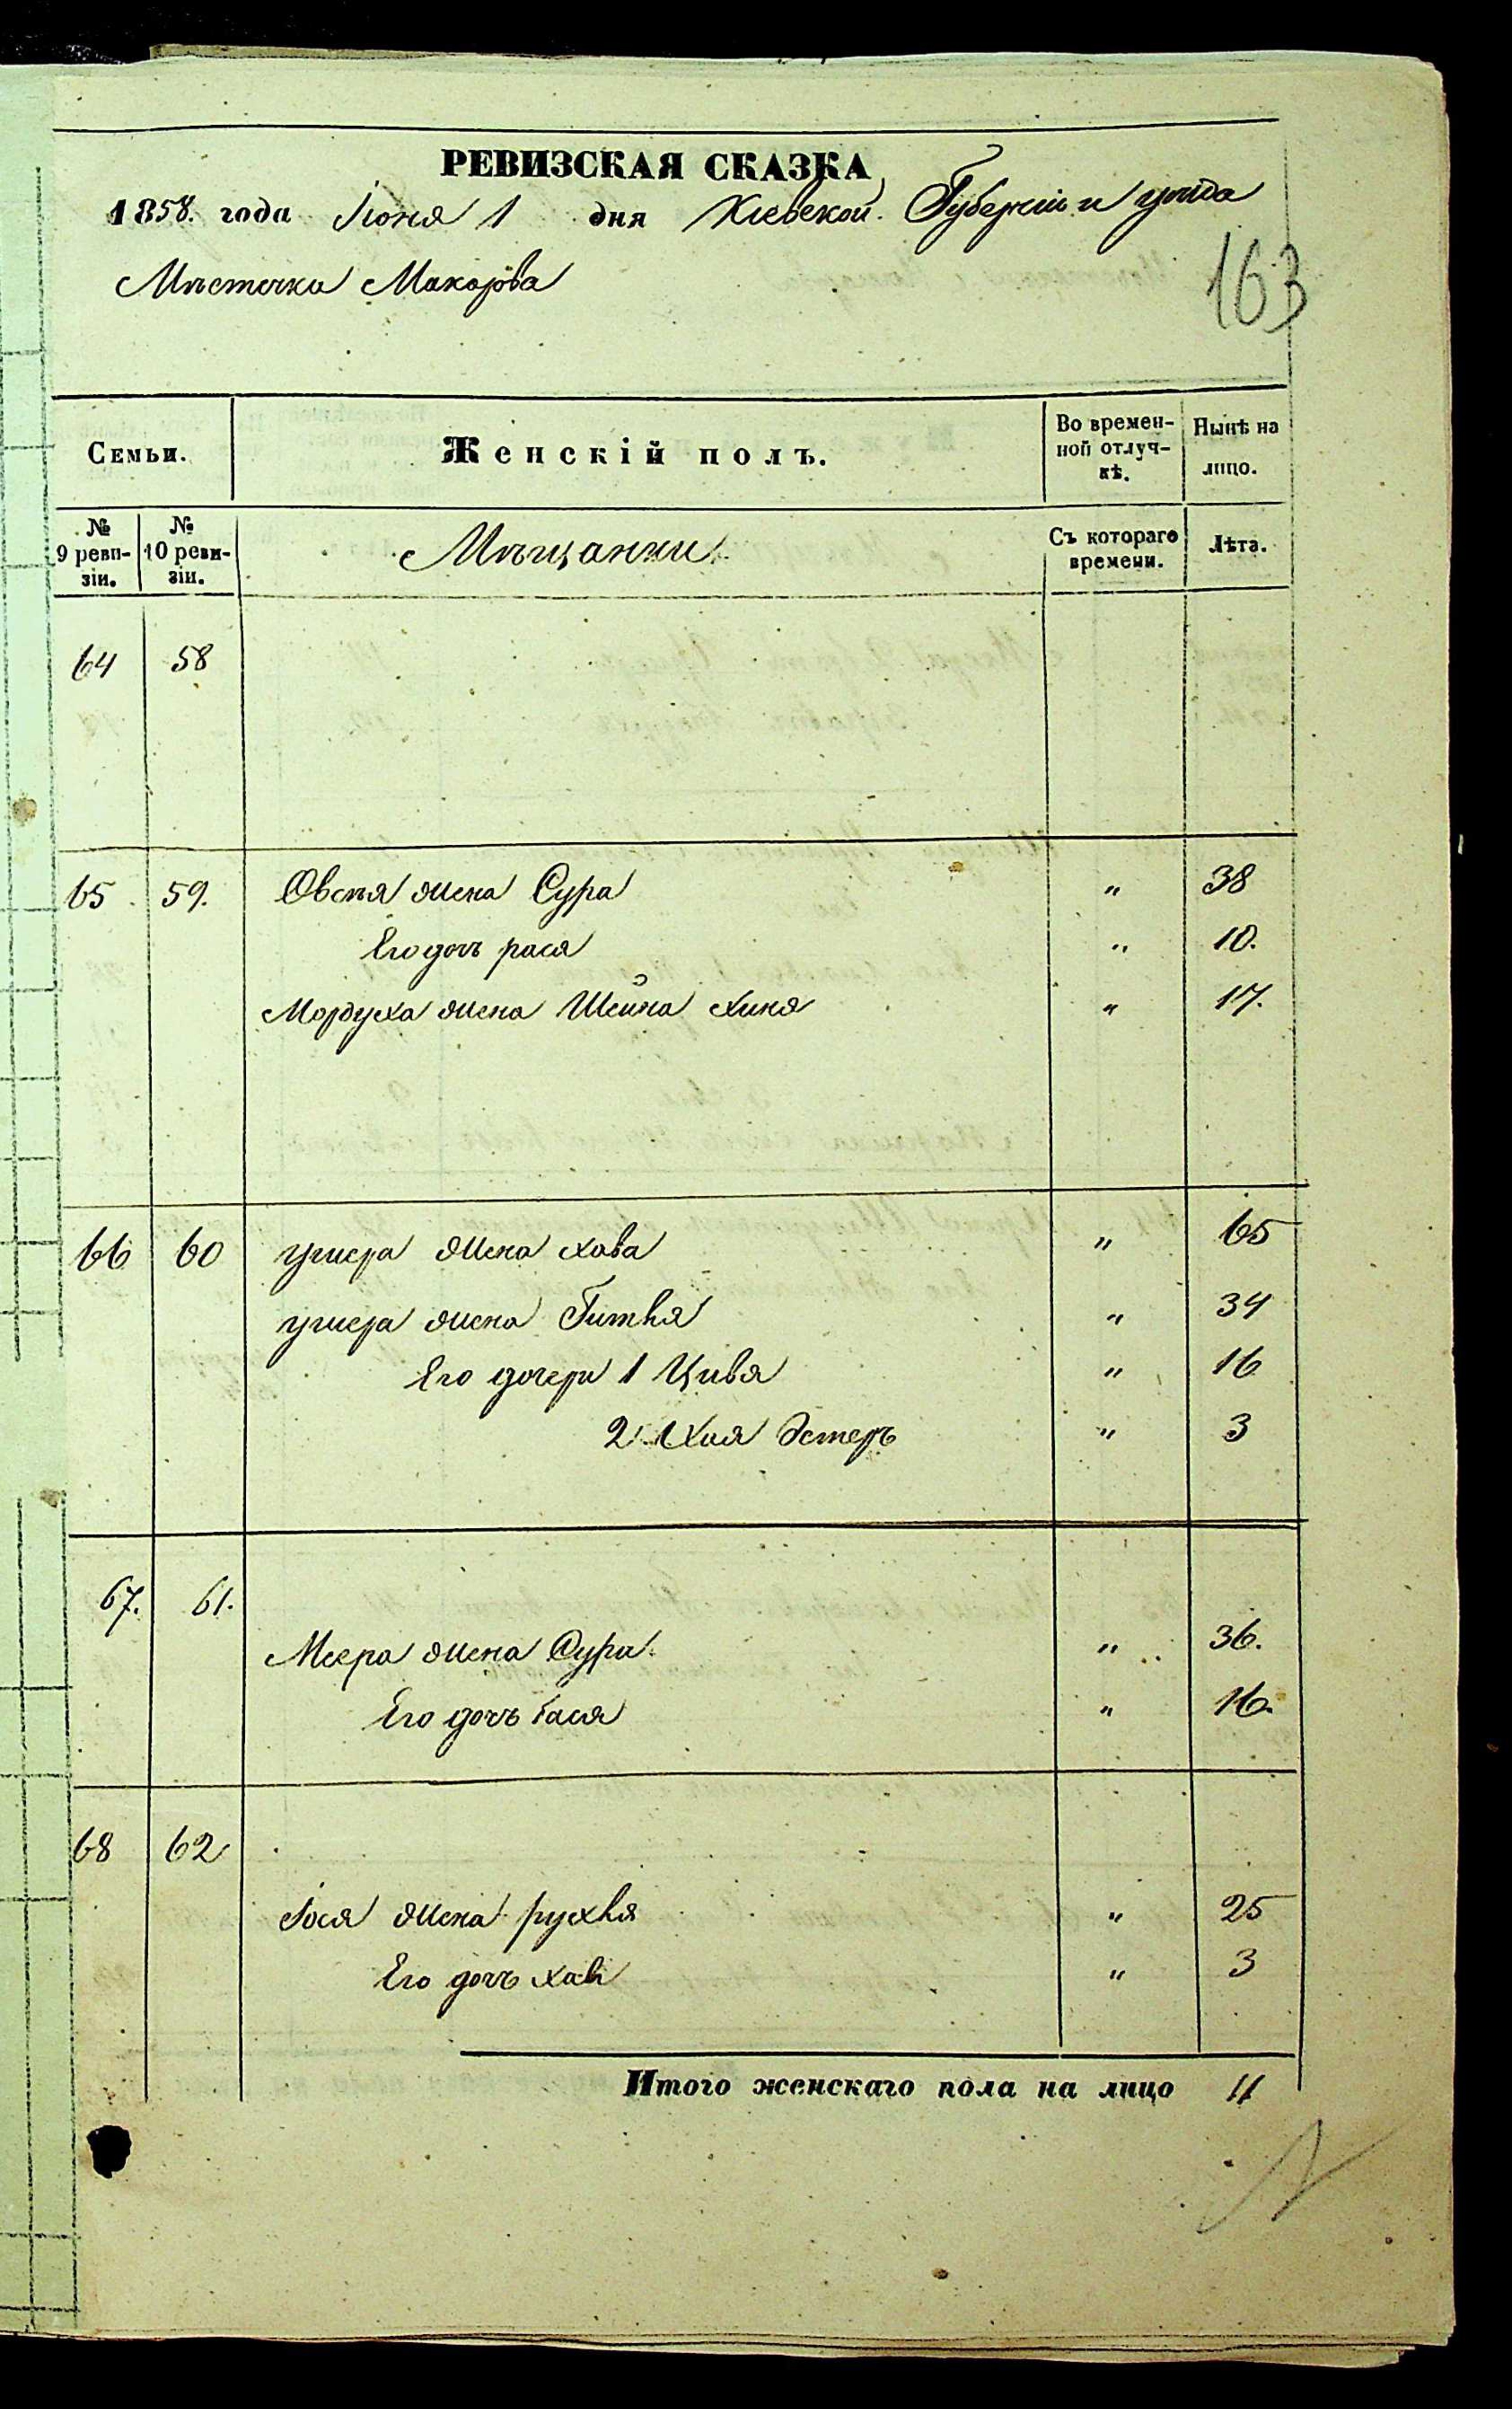 РЕВИЗСКАЯ СКАЗКА
1858. года Іюня 1 дня Кіевской Губерніи и уѣзда
Мѣстечка Макарова
163
Семьи. Женскій полъ. Во времен-ной отлуч-кѣ. Нынѣ на лицо.
№ 9 реви-зіи. № 10 реви-зіи. Мѣщанки. Съ котораго времени. Лѣта.
64 58
65 59. Овсея жена Сура " 38
Его дочь рася " 10.
Мордуха жена Шейна хина " 17.
66 60 жена хава " 65
жена Гитля " 34
Его дочери 1 Цивя " 16
2 Хая Эстеръ " 3
67. 61.
Меера жена Сура " 36.
Его дочь бася " 16.
68 62
жена рухля " 25
Его дочь хава " 3
Итого женскаго пола на лицо 11